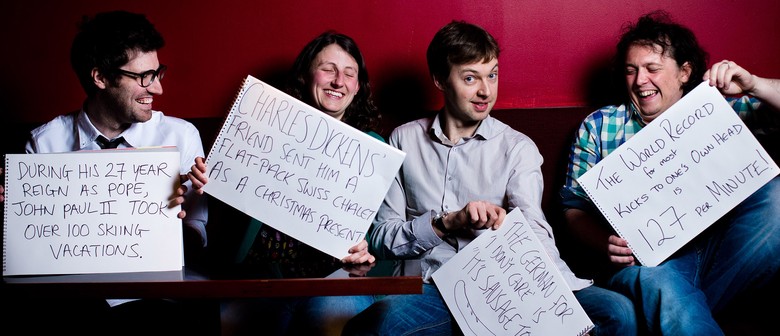 DURING HIS 27 YEAR
REIGN AS POPE,
JOHN PAUL II TOOK
OVER 100 SKIING
VACATIONS.
CHARLES DICKENS'
FRIEND SENT HIM A
FLAT-PACK SWISS CHALET
AS A CHRISTMAS PRESENT
THE GERMAN FOR
'I DON'T CARE' IS
'IT'S SAUSAGE TO
THE WORLD RECORD
for most
KICKS TO ONE'S OWN HEAD
IS
127 PER MINUTE!